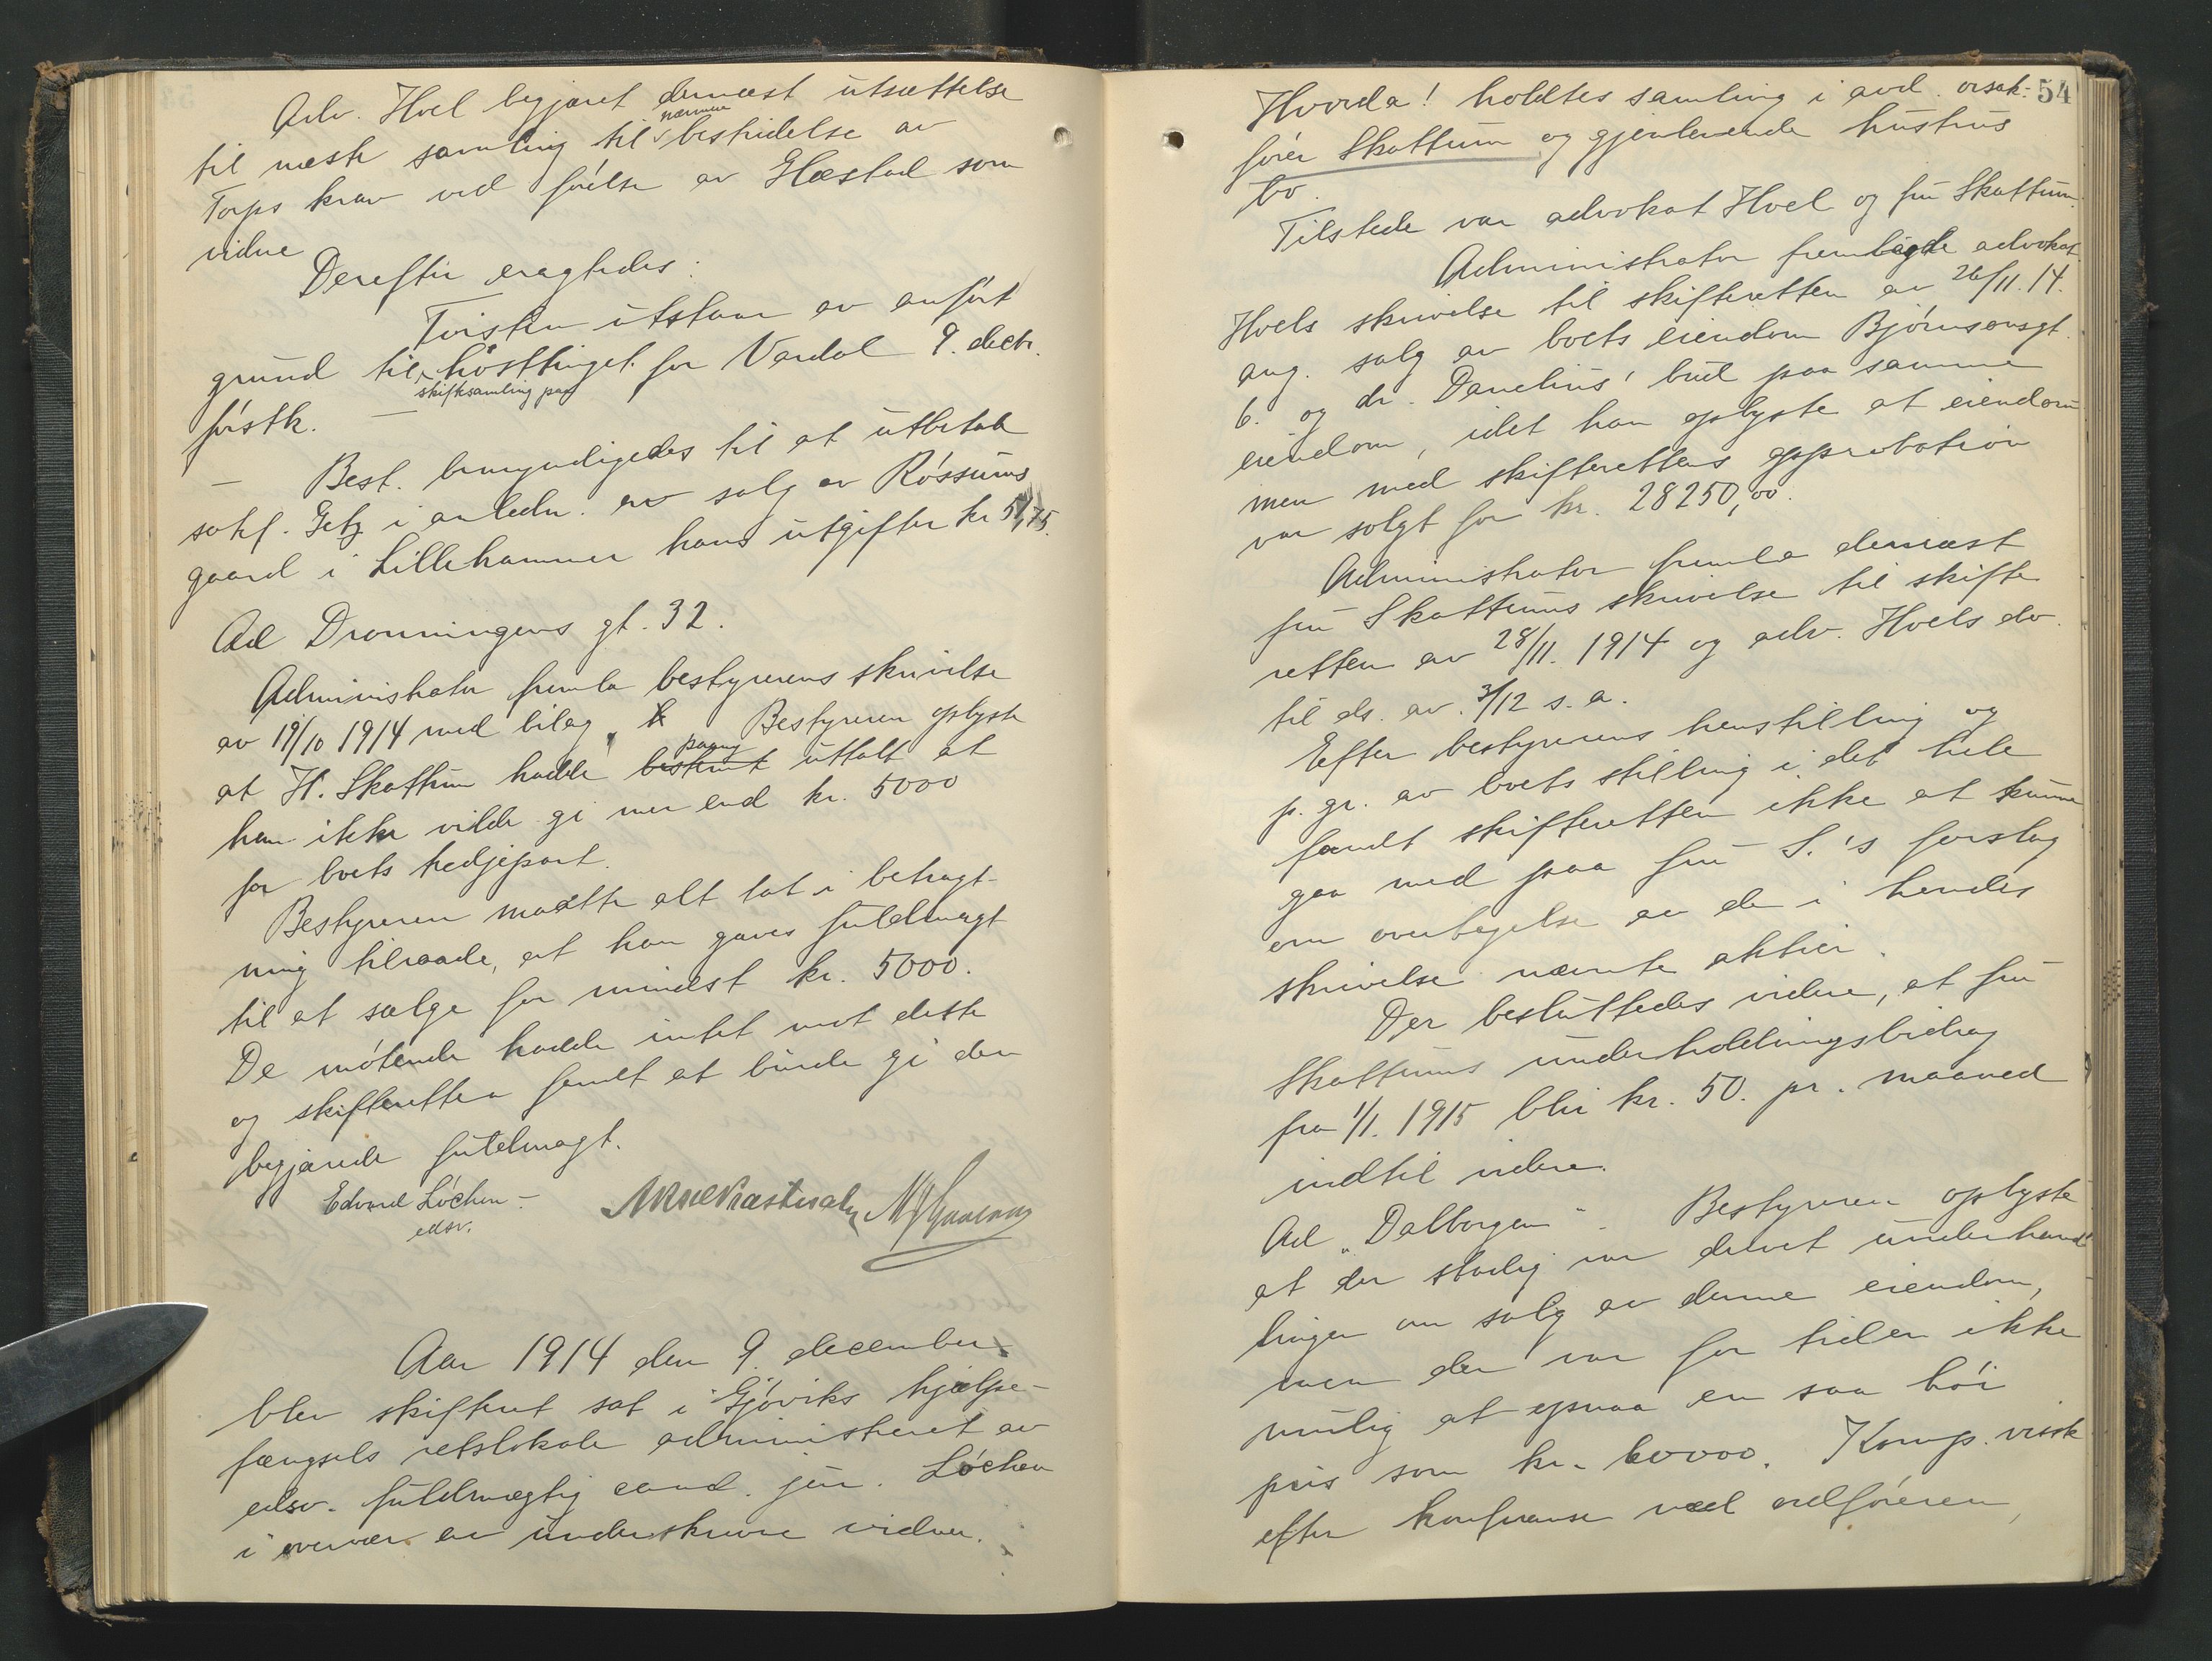 Adv. Hoel begjæret dernæst utsættelse
til næste samling til nærmere bestridelse av
Torps krav ved førelse av Glæstad som
vidne
Derefter eragtedes:
Tvisten utstaar av anført
grund til skiftesamling paa høsttinget for Vardal 9. decbr.
førstk. —
— Best. bemyndigedes til at utbetale
sakf. Getz i anledn. av salg av Røssums
gaard i Lillehammer hans utgifter kr 51,75.
Ad Dronningens gt. 32.
Administrator fremla bestyrerens skrivelse
av 19/10 1914 med bilag. Bestyreren oplyste
at H. Skattum hadde bestemt paany uttalt at
han ikke vilde gi mer end kr. 5000
for boets tredjepart.
Bestyreren maatte alt tat i betragt-
ning tilraade, at han gaves fuldmagt
til at sælge for mindst kr. 5000.
De møtende hadde intet mot dette
og skifteretten fandt at burde gi den
begjærede fuldmagt.
Edvard Løchen —
edsv.
Aar 1914 den 9. december
blev skifteret sat i Gjøviks hjælpe-
fængsels retslokale administreret av
edsv. fuldmægtig cand. jur. Løchen
i overvær av underskrevne vidner.
54
Hvorda! holdtes samling i avd. orsak-
fører Skattum og gjenlevende hustrus
bo.
Tilstede var advokat Hoel og fru Skattum.
Administrator fremlagde advokat
Hoels skrivelse til skifteretten av 26/11. 14.
ang. salg av boets eiendom Bjørnsonsgt.
6. og dr. Danelius' bud paa samme
eiendom, idet han oplyste at eiendom-
men med skifterettens approbation
var solgt for kr. 28250,00.
Administrator fremla dernæst
fru Skattums skrivelse til skifte
retten av 28/11. 1914 og adv. Hoels do.
til ds. av. 3/12 s. a.
Efter bestyrerens henstilling og
p. gr. av boets stilling i det hele
fandt skifteretten ikke at kunne
gaa med paa fru S.'s forslag
om overtagelse av de i hendes
skrivelse nævnte aktier.
Der besluttedes videre, at fru
Skattums underholdningsbidrag
fra 1/1. 1915 blir kr. 50. pr. maaned
indtil videre.
Ad „Dalborgen". Bestyreren oplyste
at der stadig var drevet underhand-
linger om salg av denne eiendom,
men der var for tiden ikke
mulig at opnaa en saa høi
pris som kr. 60000. Komp. visste
efter konferanse med ordføreren,